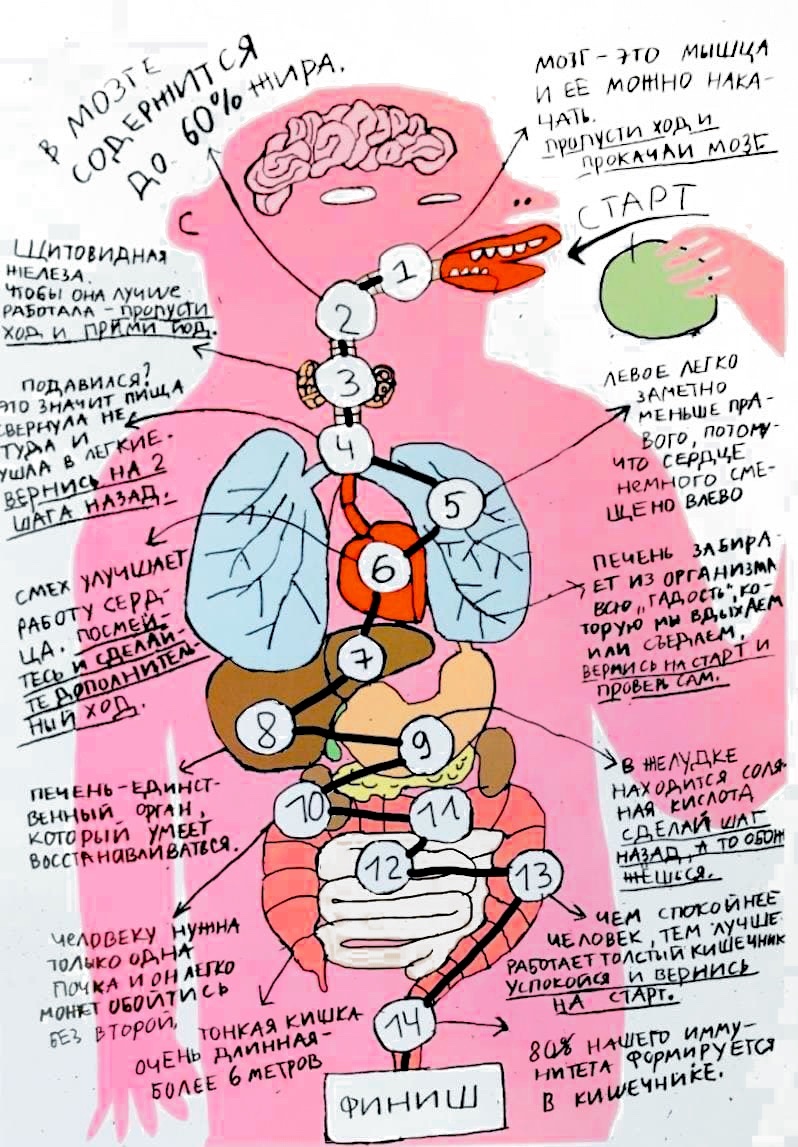 В МОЗГЕ
СОДЕРЖИТСЯ
ДО 60% ЖИРА.
МОЗГ - ЭТО МЫШЦА
И ЕЁ МОЖНО НАКА-
ЧАТЬ.
ПРОПУСТИ ХОД И
ПРОКАЧАЙ МОЗГ
СТАРТ
ЩИТОВИДНАЯ
ЖЕЛЕЗА.
ЧТОБЫ ОНА ЛУЧШЕ
РАБОТАЛА - ПРОПУСТИ
ХОД И ПРИМИ ЙОД.
1
2
3
4
5
6
7
8
9
10
11
12
13
14
ПОДАВИЛСЯ?
ЭТО ЗНАЧИТ ПИЩА
СВЕРНУЛА НЕ
ТУДА И
УШЛА В ЛЕГКИЕ.
ВЕРНИСЬ НА 2
ШАГА НАЗАД.
ЛЕВОЕ ЛЕГКО
ЗАМЕТНО
МЕНЬШЕ ПРА-
ВОГО, ПОТОМУ-
ЧТО СЕРДЦЕ
НЕМНОГО СМЕ-
ЩЕНО ВЛЕВО
СМЕХ УЛУЧШАЕТ
РАБОТУ СЕРД-
ЦА. ПОСМЕЙ-
ТЕСЬ И СДЕЛАЙ-
ТЕ ДОПОЛНИТЕЛЬ-
НЫЙ ХОД.
ПЕЧЕНЬ ЗАБИРА-
ЕТ ИЗ ОРГАНИЗМА
ВСЮ „ГАДОСТЬ", КО-
ТОРУЮ МЫ ВДЫХАЕМ
ИЛИ СЪЕДАЕМ.
ВЕРНИСЬ НА СТАРТ И
ПРОВЕРЬ САМ.
ПЕЧЕНЬ - ЕДИНСТ-
ВЕННЫЙ ОРГАН,
КОТОРЫЙ УМЕЕТ
ВОССТАНАВЛИВАТЬСЯ.
В ЖЕЛУДКЕ
НАХОДИТСЯ СОЛЯ-
НАЯ КИСЛОТА
СДЕЛАЙ ШАГ
НАЗАД, А ТО ОБОЖ
ЖЁШЬСЯ.
ЧЕЛОВЕКУ НУЖНА
ТОЛЬКО ОДНА
ПОЧКА И ОН ЛЕГКО
МОЖЕТ ОБОЙТИСЬ
БЕЗ ВТОРОЙ.
ЧЕМ СПОКОЙНЕЕ
ЧЕЛОВЕК, ТЕМ ЛУЧШЕ
РАБОТАЕТ ТОЛСТЫЙ КИШЕЧНИК
УСПОКОЙСЯ И ВЕРНИСЬ
НА СТАРТ.
ТОНКАЯ КИШКА
ОЧЕНЬ ДЛИННАЯ -
БОЛЕЕ 6 МЕТРОВ
80% НАШЕГО ИММУ-
НИТЕТА ФОРМИРУЕТСЯ
В КИШЕЧНИКЕ.
ФИНИШ